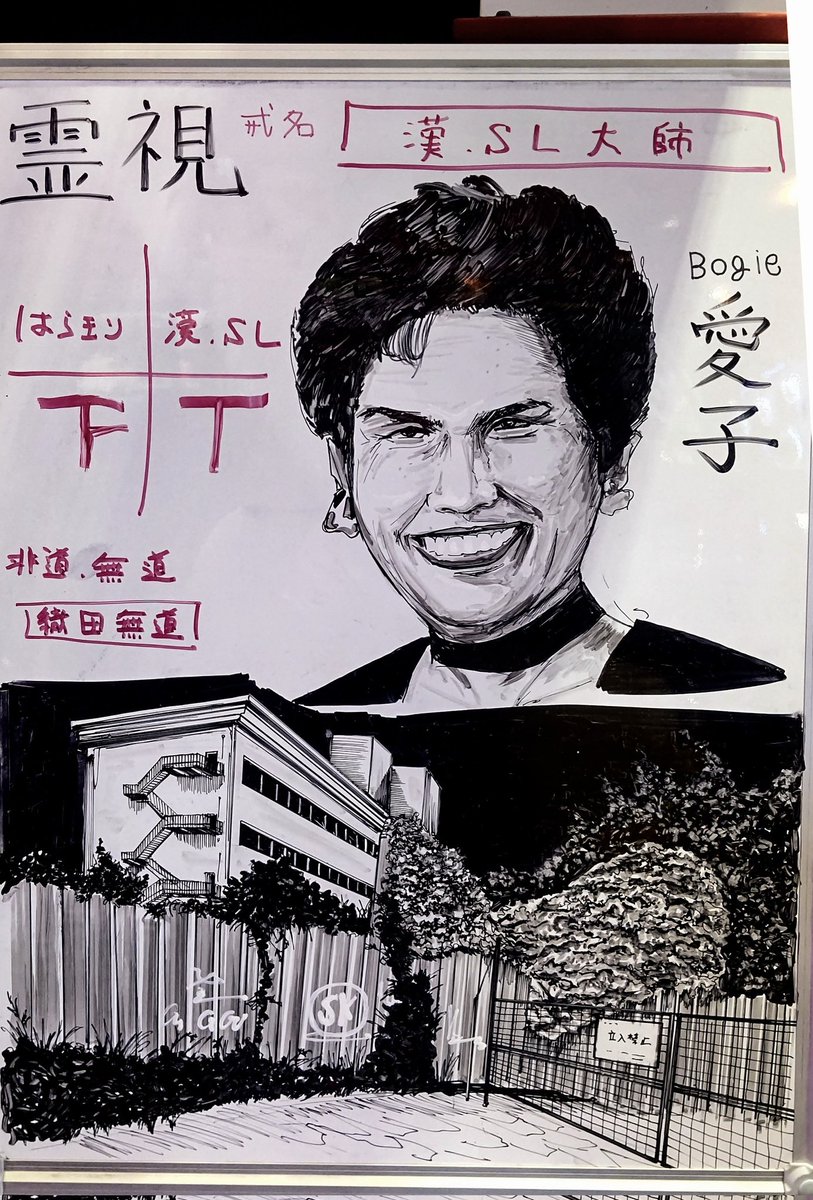 霊視
戒名
漢.SL大師
Bogie
愛子
はらキリ
漢.SL
下
丁
非道.無道
織田無道
SK
立入禁止